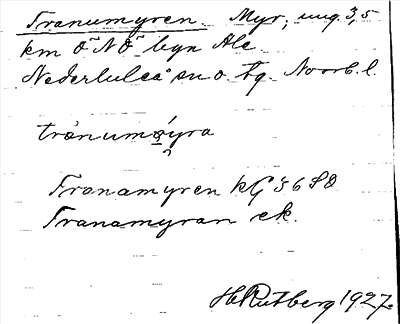 Tranumyren. Myr, ung. 3,5
km ÖNÖ byn Ale
Nederluleå sn o. tg. Norrb. l.
trånumýra
Tranamyren kG 36 SO
Tranamyran ek.
H Rutberg 1927.